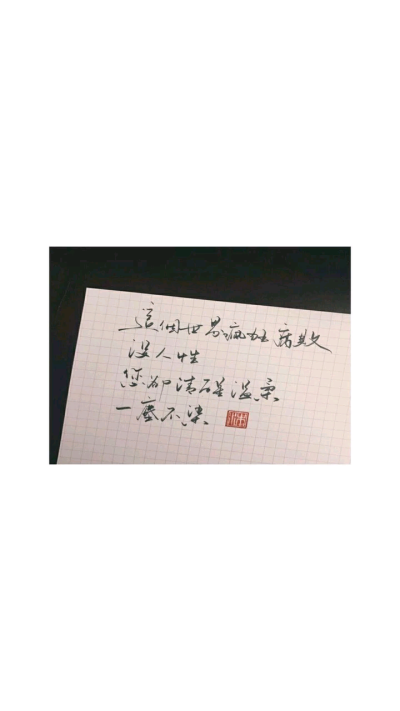 這個世界瘋狂腐敗
没人性
您卻清醒溫柔
一塵不染